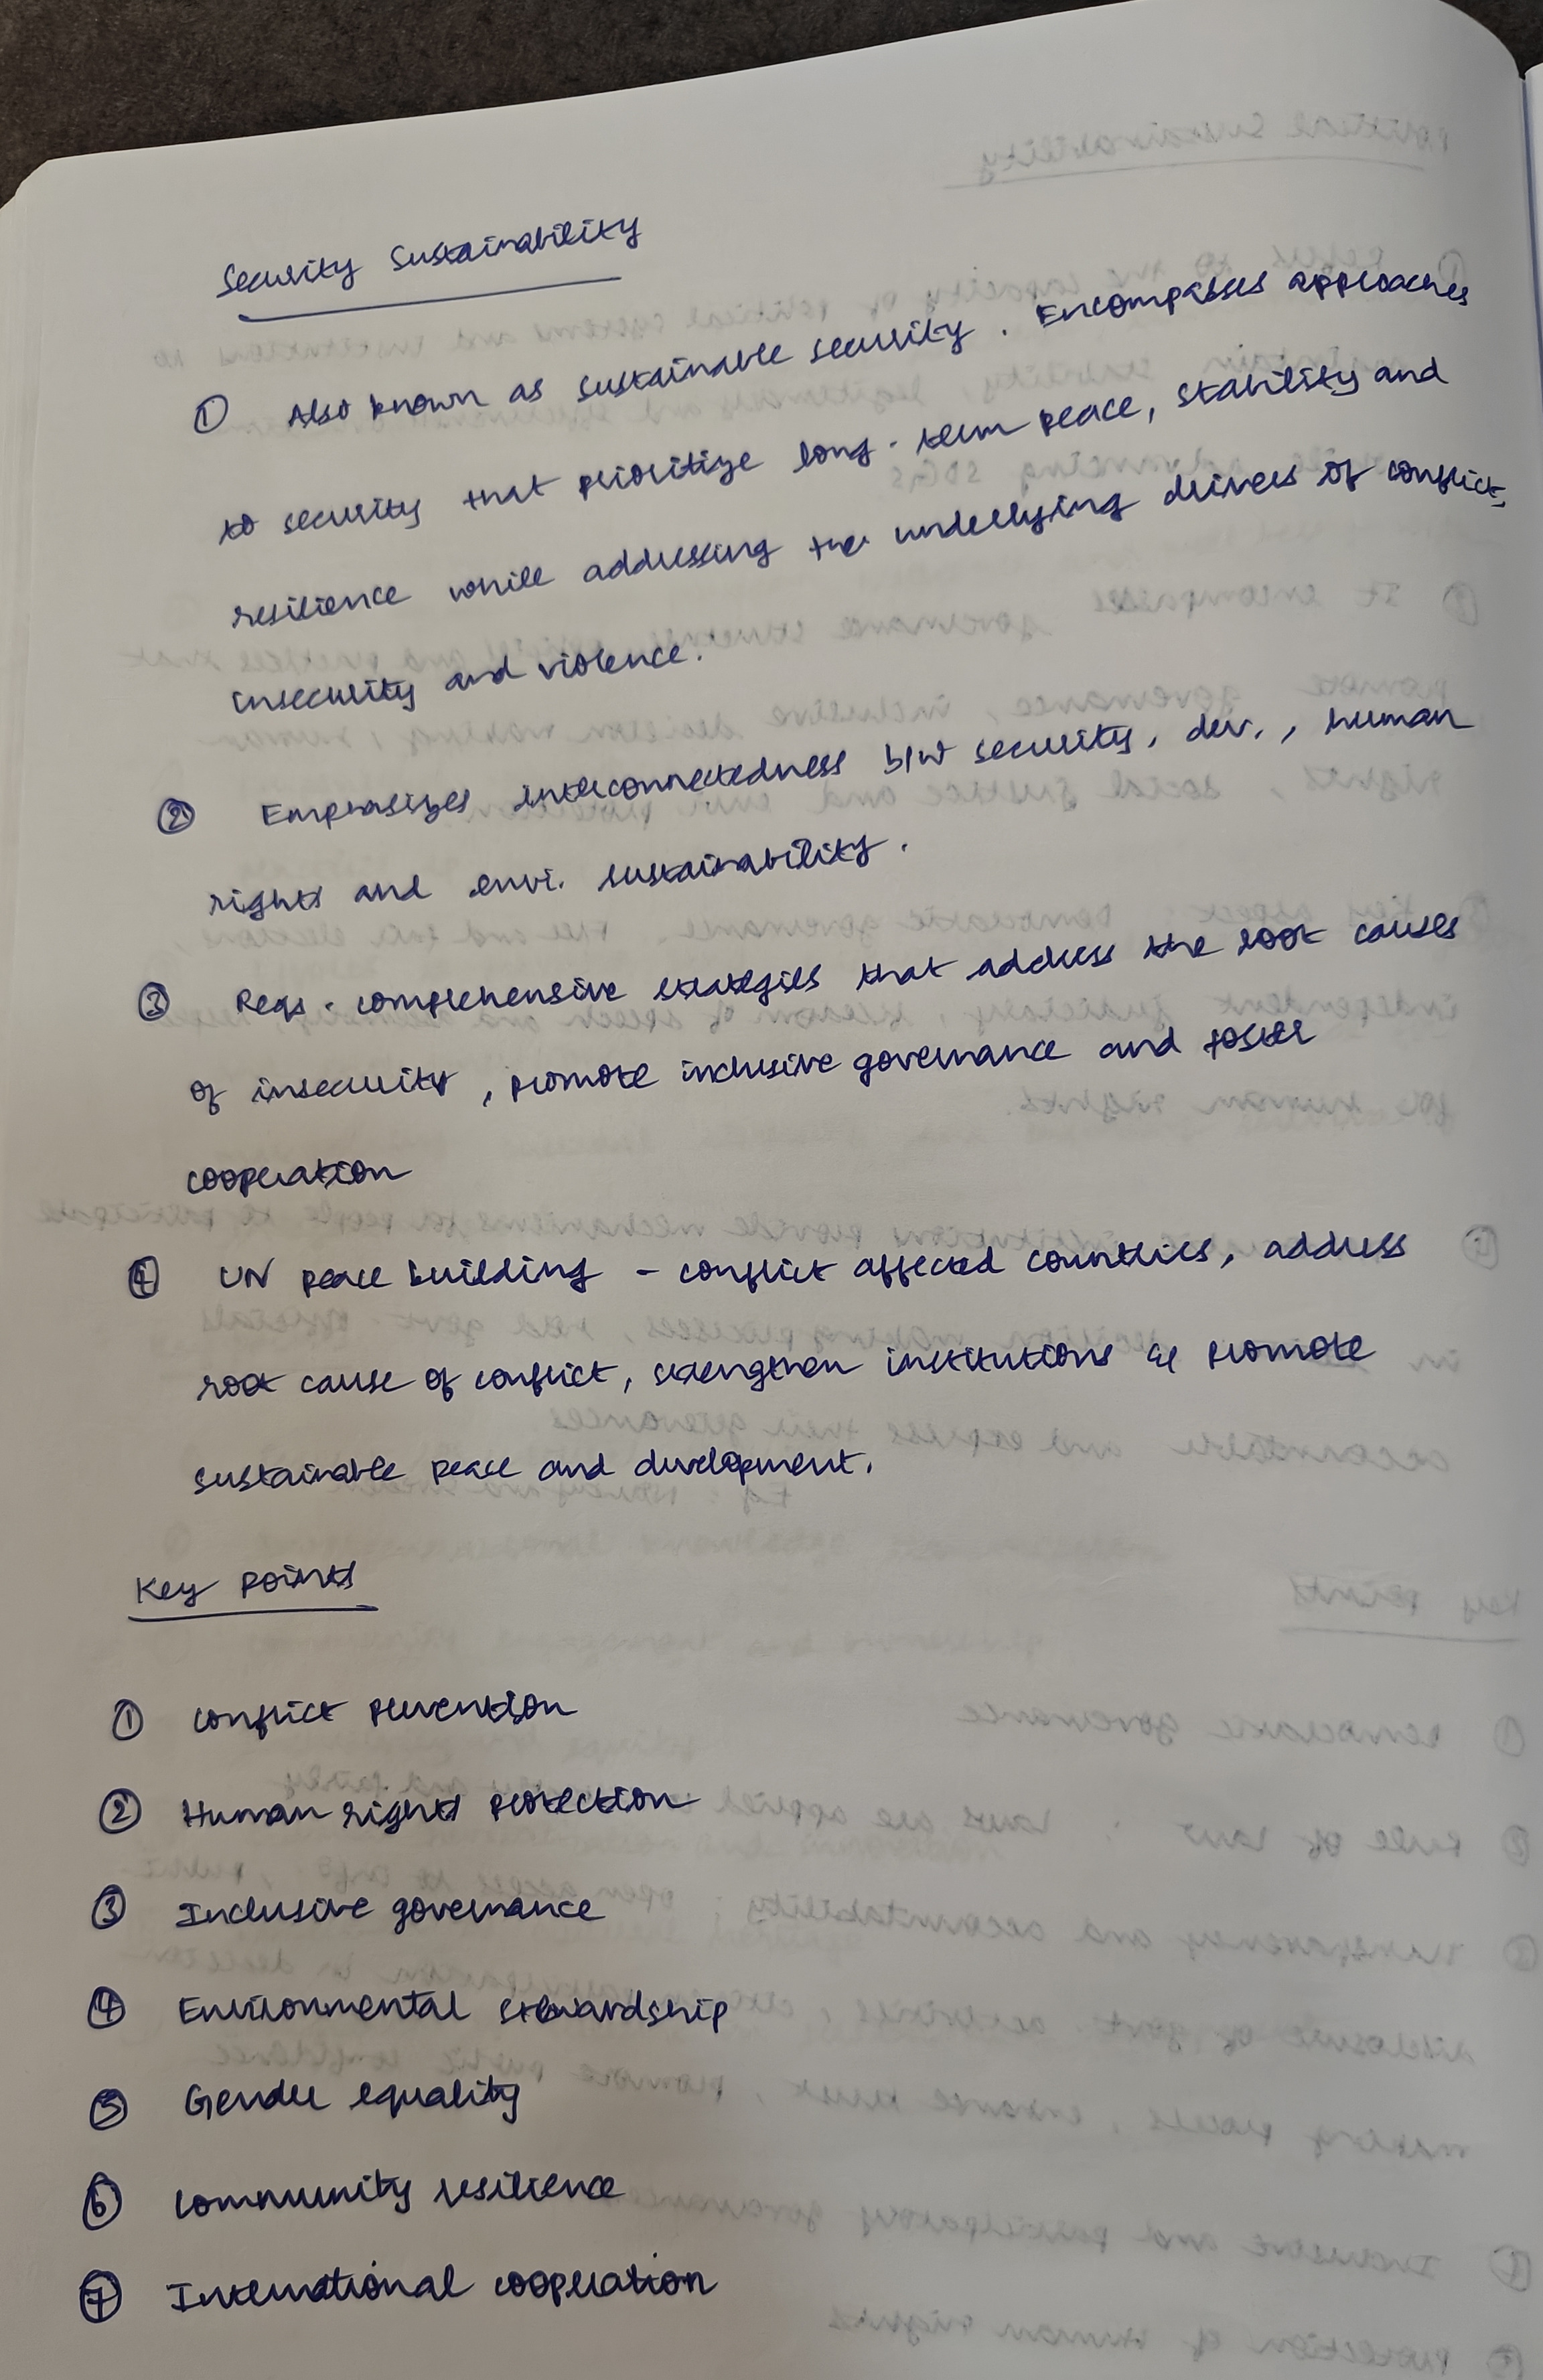 Security Sustainability
① Also known as sustainable security. Encompasses approaches
to security that prioritize long-term peace, stability and
resilience while addressing the underlying drivers of conflict,
insecurity and violence.
② Emphasizes interconnectedness b/w security, dev., human
rights and envi. sustainability.
③ Reqs. comprehensive strategies that address the root causes
of insecurity, promote inclusive governance and foster
cooperation
④ UN peace building - conflict affected countries, address
root cause of conflict, strengthen institutions & promote
sustainable peace and development.
Key points
① Conflict prevention
② Human rights protection
③ Inclusive governance
④ Environmental stewardship
⑤ Gender equality
⑥ Community resilience
⑦ International cooperation